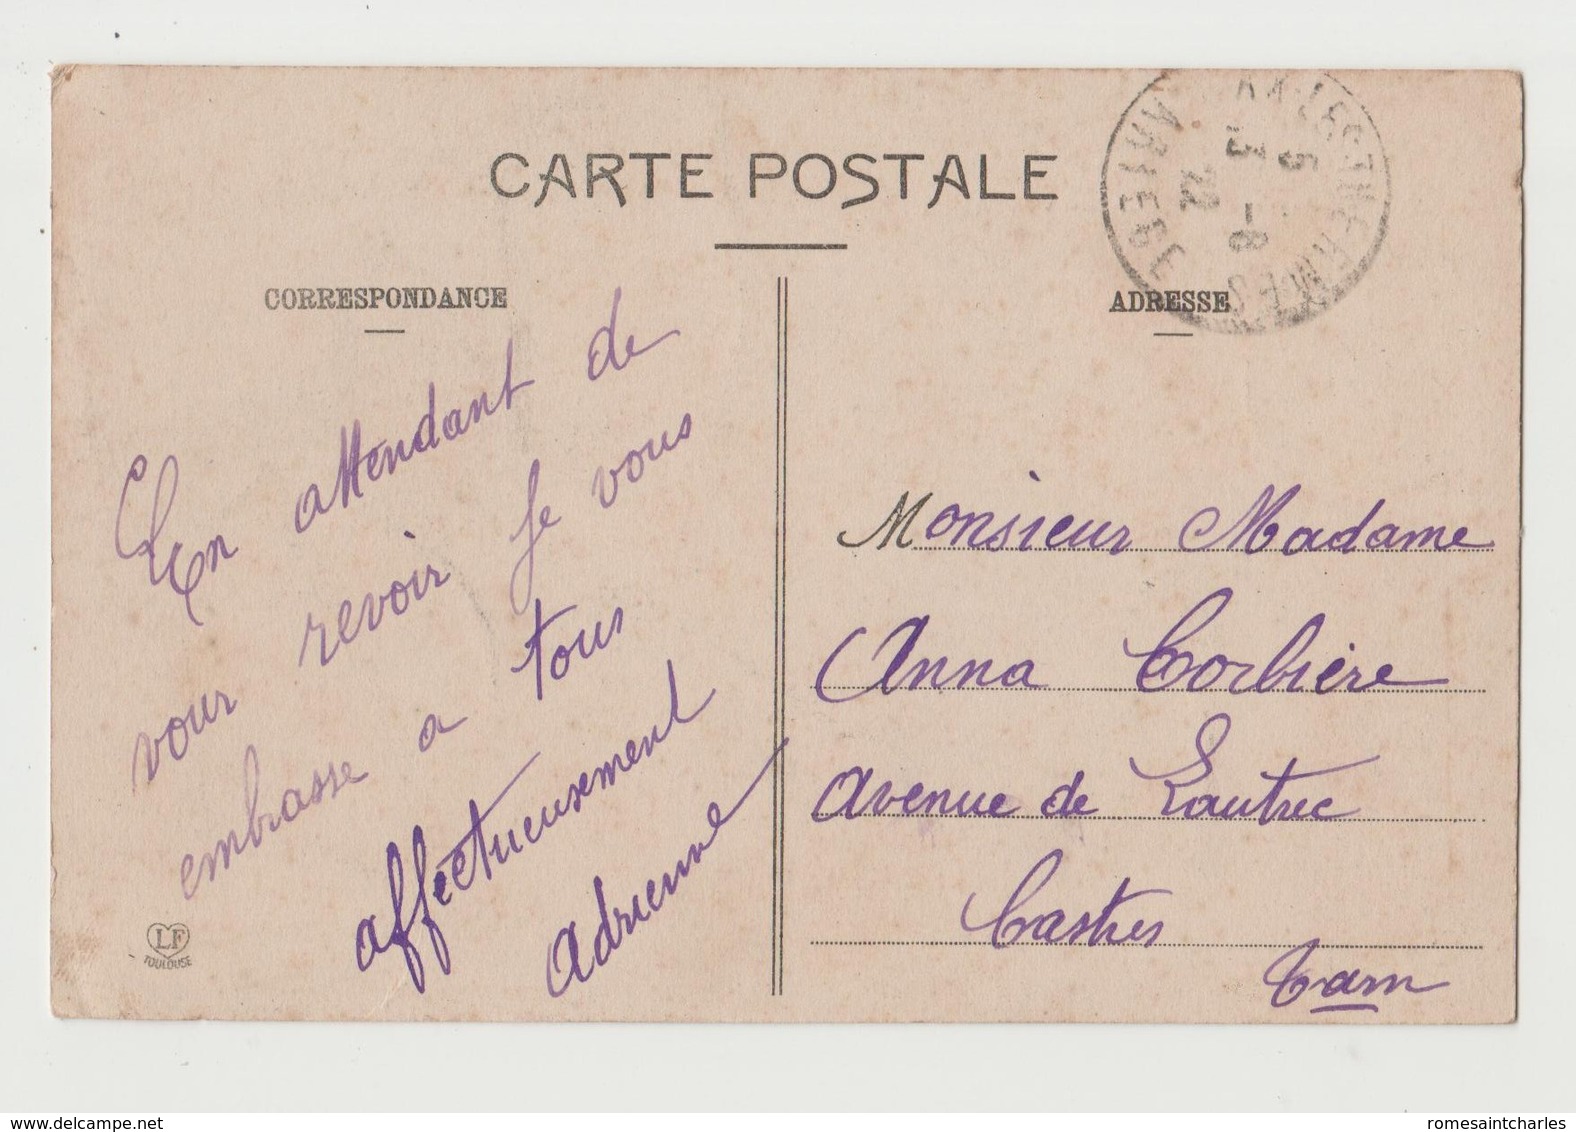 CARTE POSTALE
CORRESPONDANCE
ADRESSE
AX-LES-THERMES
ARIEGE
13 - 8
22
En attendant de
revoir je vous
vour
embrasse a tous
affectueusement
Adrienne
LF
TOULOUSE
Monsieur Madame
Anna Corbière
Avenue de Lautrec
Castres
Tarn
delcampe.net
romesaintcharles